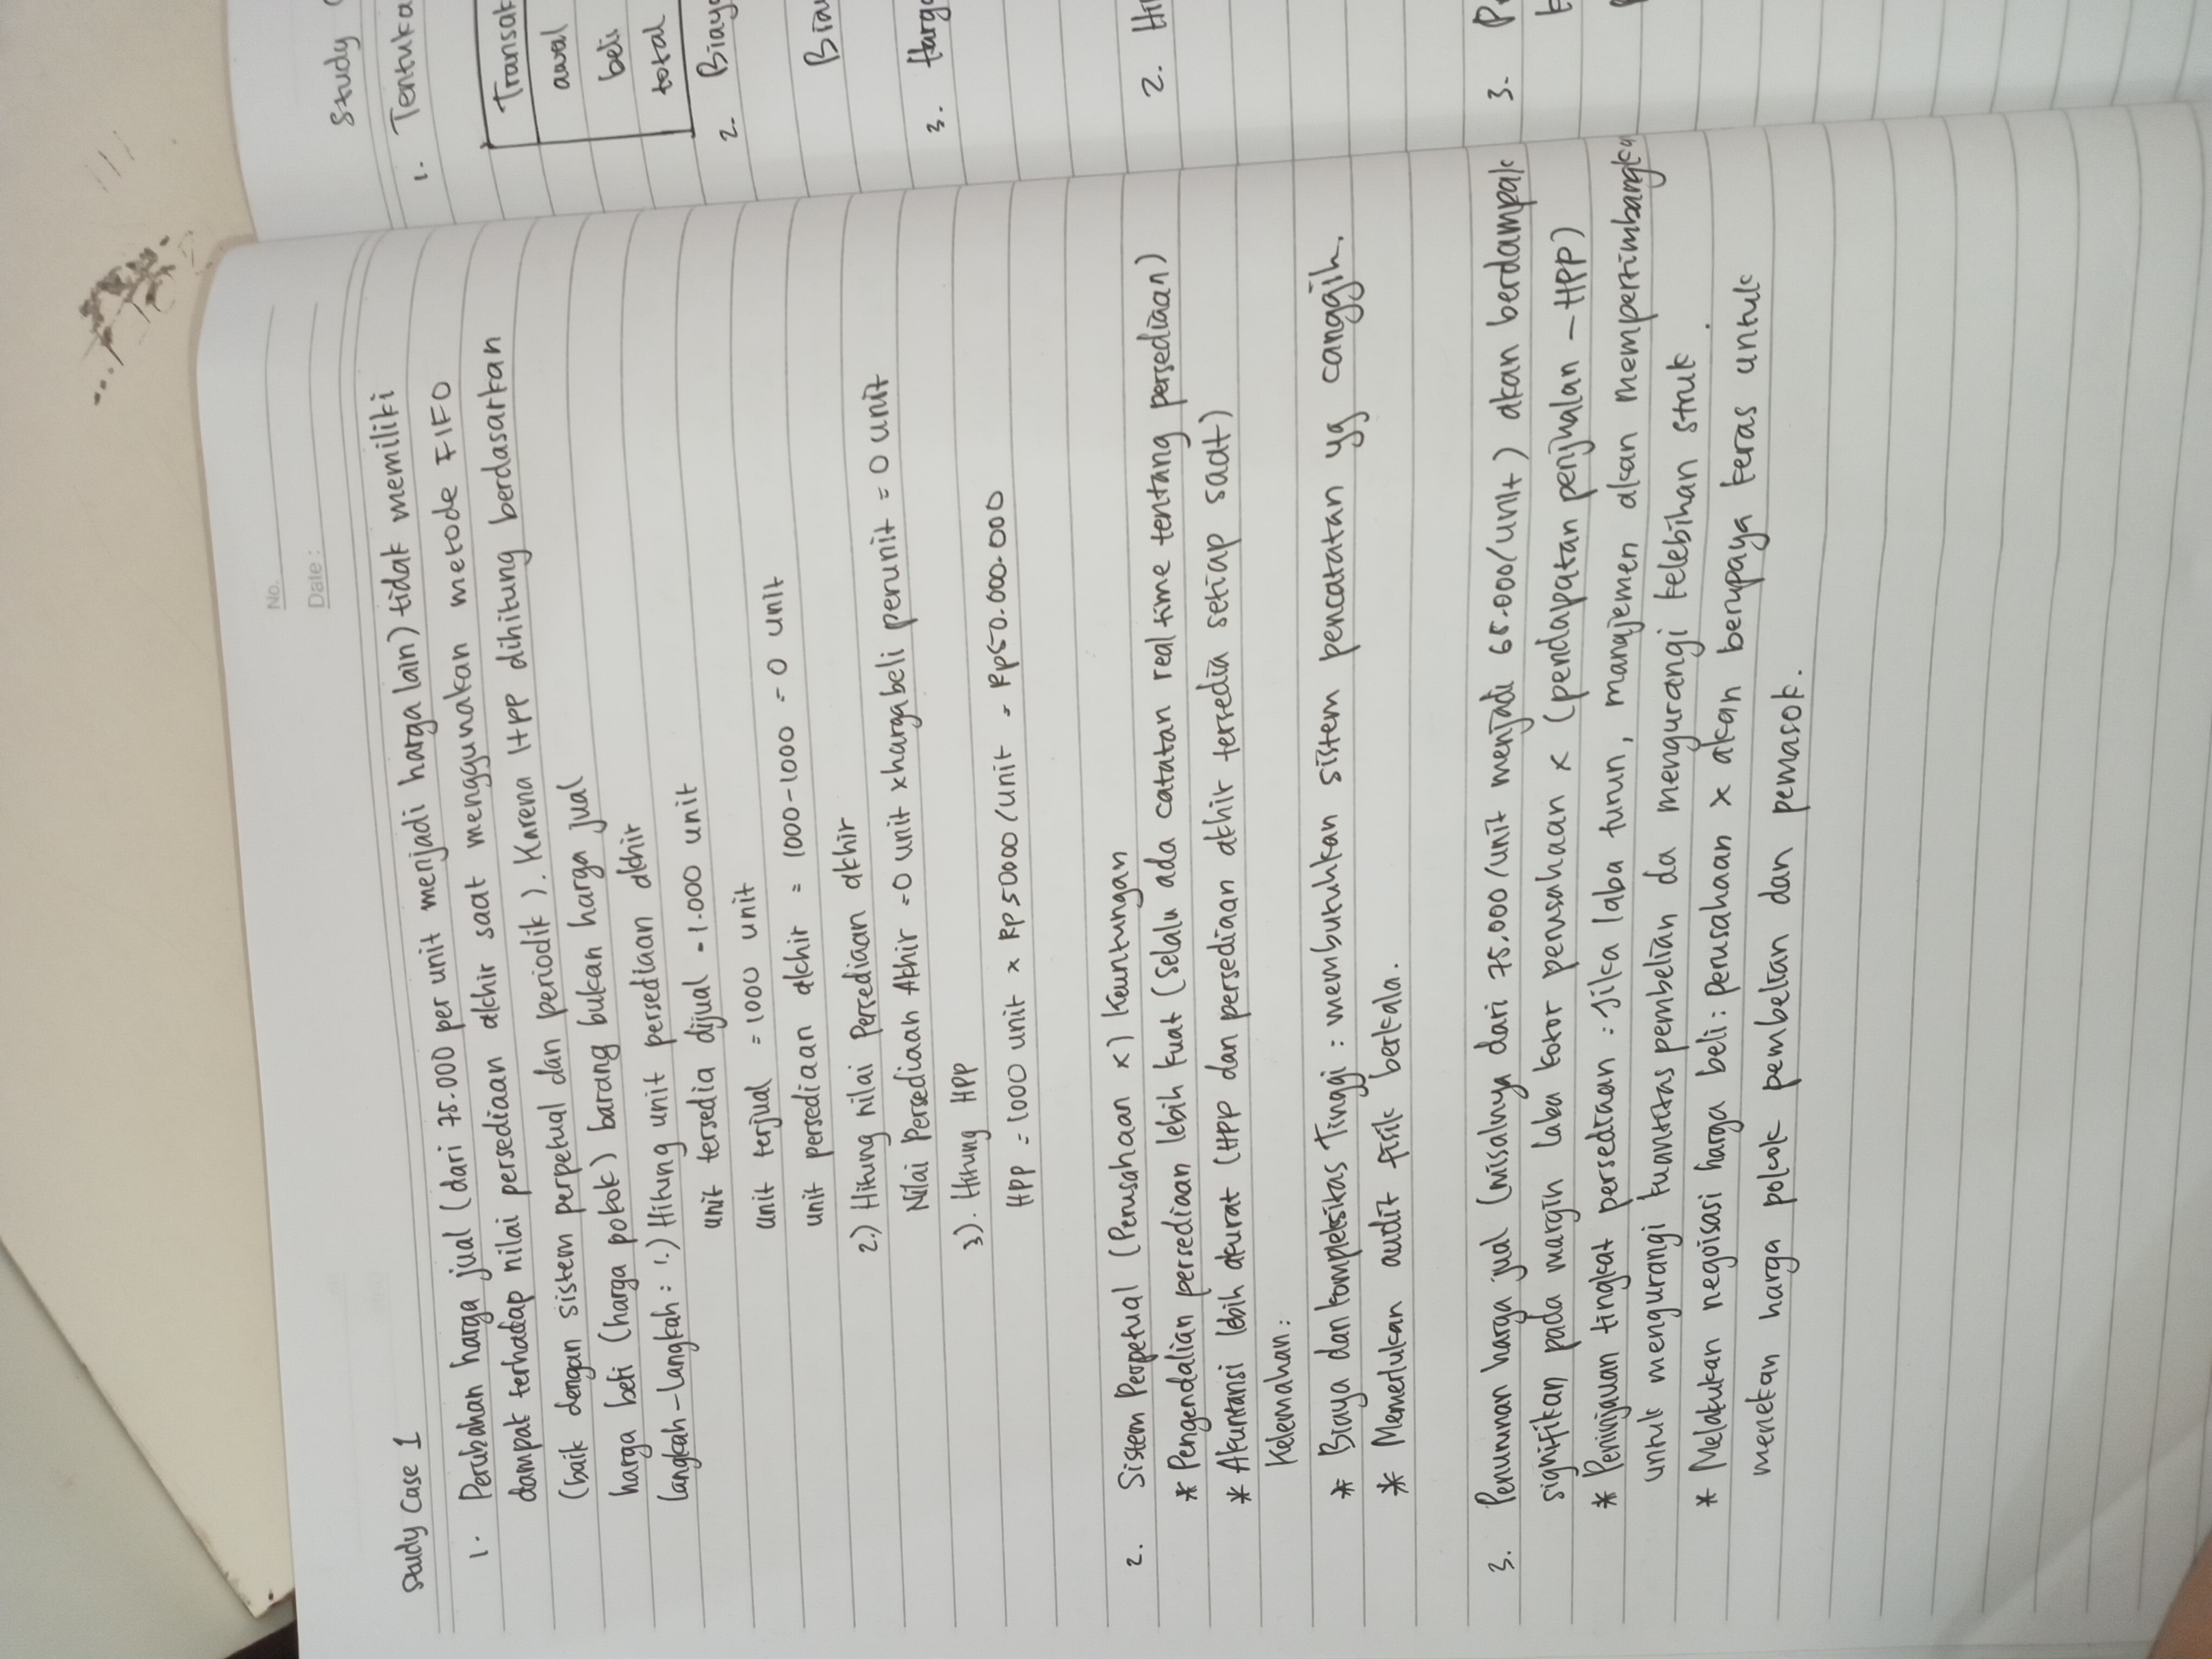 No.
Date:
Study Case 1
1. Perubahan harga jual (dari 75.000 per unit menjadi harga lain) tidak memiliki
dampak terhadap nilai persediaan akhir saat menggunakan metode FIFO
(baik dengan sistem perpetual dan periodik). Karena HPP dihitung berdasarkan
harga beli (harga pokok) barang bukan harga jual
Langkah-langkah: 1.) Hitung unit persediaan akhir
unit tersedia dijual = 1.000 unit
unit terjual = 1000 unit
unit persediaan akhir = 1000-1000 = 0 unit
2.) Hitung nilai Persediaan akhir
Nilai Persediaan Akhir = 0 unit x harga beli perunit = 0 unit
3). Hitung HPP
HPP = 1000 unit x Rp50000/unit = Rp50.000.000
2. Sistem Perpetual (Perusahaan x) Keuntungan
* Pengendalian persediaan lebih kuat (selalu ada catatan real time tentang persediaan)
* Akuntansi lebih akurat (HPP dan persediaan akhir tersedia setiap saat)
Kelemahan:
* Biaya dan kompleksitas Tinggi: membutuhkan sistem pencatatan yg canggih.
* Memerlukan audit fisik berkala.
3. Penurunan harga jual (misalnya dari 75.000/unit menjadi 65.000/unit) akan berdampak
signifikan pada margin laba kotor perusahaan x (pendapatan penjualan - HPP)
* Peninjauan tingkat persediaan: Jika laba turun, manajemen akan mempertimbangka
untuk mengurangi kuantitas pembelian da mengurangi kelebihan struk.
* Melakukan negoisasi harga beli: perusahaan x akan berupaya keras untuk
menekan harga pokok pembelian dan pemasok.
Study
1. Tentuka
Transak
awal
beli
total
2. Biaya
Bia
3. Harga
2. Hi
3. P